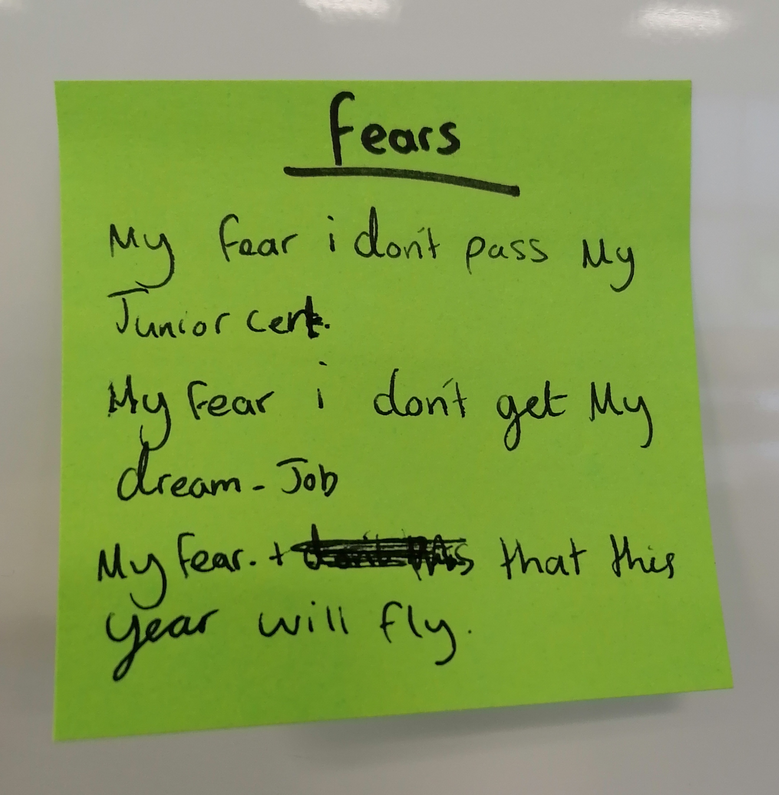 Fears
My fear i don't pass My
Junior cert.
My fear i don't get My
dream - Job
My fear. that this
year will fly.